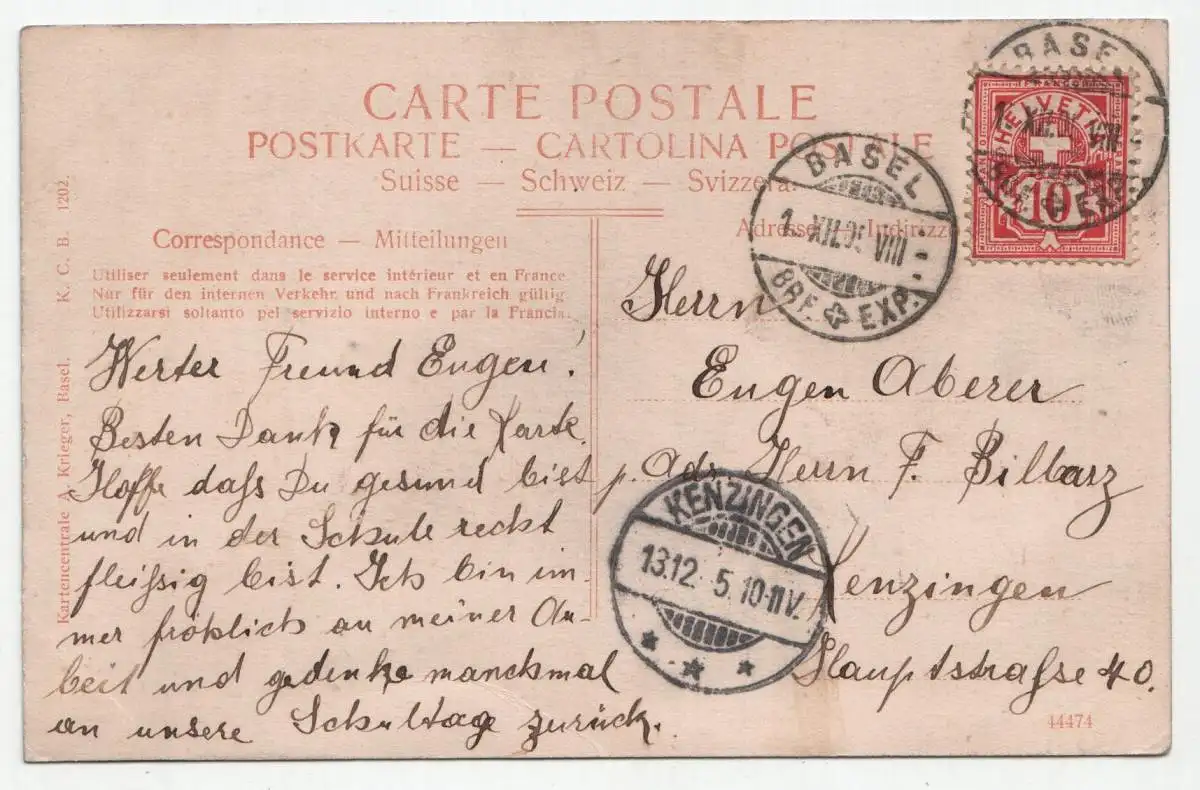 CARTE POSTALE
POSTKARTE — CARTOLINA POSTALE
Suisse — Schweiz — Svizzera.
Correspondance — Mitteilungen
Utiliser seulement dans le service intérieur et en France.
Nur für den internen Verkehr und nach Frankreich gültig.
Utilizzarsi soltanto pel servizio interno e par la Francia.
Adresse — Indirizz
Kartencentrale A. Krieger, Basel. K. C. B. 1202.
Werter Freund Eugen!
Besten Dank für die Karte.
Hoffe dafs Du gesund bist
und in der Schule recht
fleifsig bist. Ich bin im-
mer fröhlich an meiner Ar-
beit und gedenke manchmal
an unsere Schultage zurück.
Herrn
Eugen Aberer
p. Adr. Herrn F. Billarz
Kenzingen
Hauptstrafse 40.
44474
BASEL
1. XII. VIII
BRF. EXP.
BASE
1. XII. VIII
EXP.
HELVETIA
10
KENZINGEN
13.12. 5. 10-11 V.